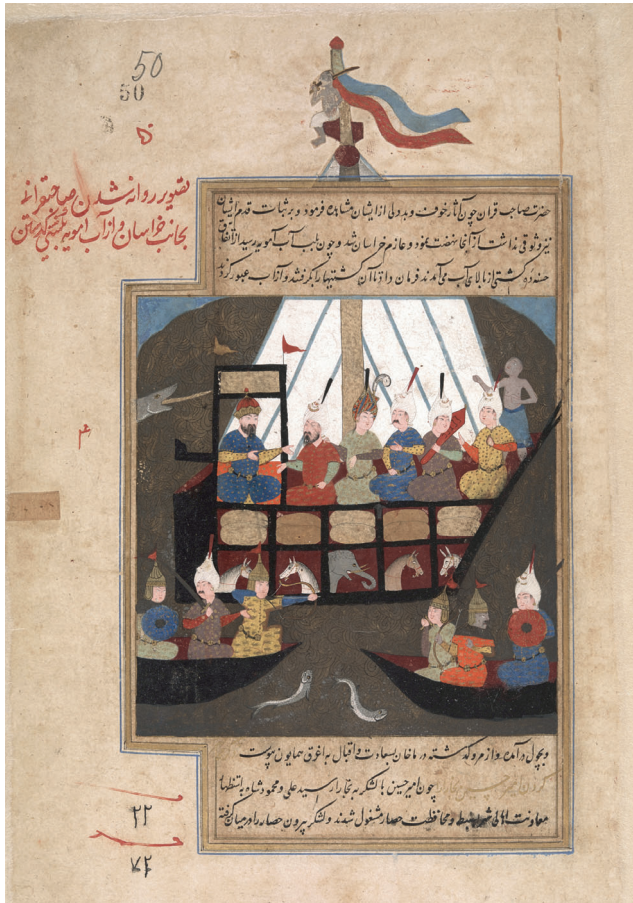 50
50
تصویر روانه شدن صاحبقرانی
بجانب خراسان و از آب آمویه بکشتی گذشتن
حضرت صاحب قران چون آثار خوف و بددلی از ایشان مشاهده فرمود و بر ثبات قدم ایشان
نیز وثوقی نداشت از آنجا نهضت نمود و عازم خراسان شد و چون بلب آب آمویه رسید از اتفاق
حسنه ده کشتی از بالای آب می‌آمدند فرمان داد تا آن کشتیها را گرفتند و از آب عبور کردند
و بچول درآمده و از مرو گذشته در ماخان بسعادت و اقبال به اغرق همایون پیوست
چون امیر حسین با لشکر به بخارا رسید علی و محمود شاه باستظهار
معاونت اهالی شهر بضبط و محافظت حصار مشغول شدند و لشکر بیرون حصار را در میان گرفته
۲۲
۷۲